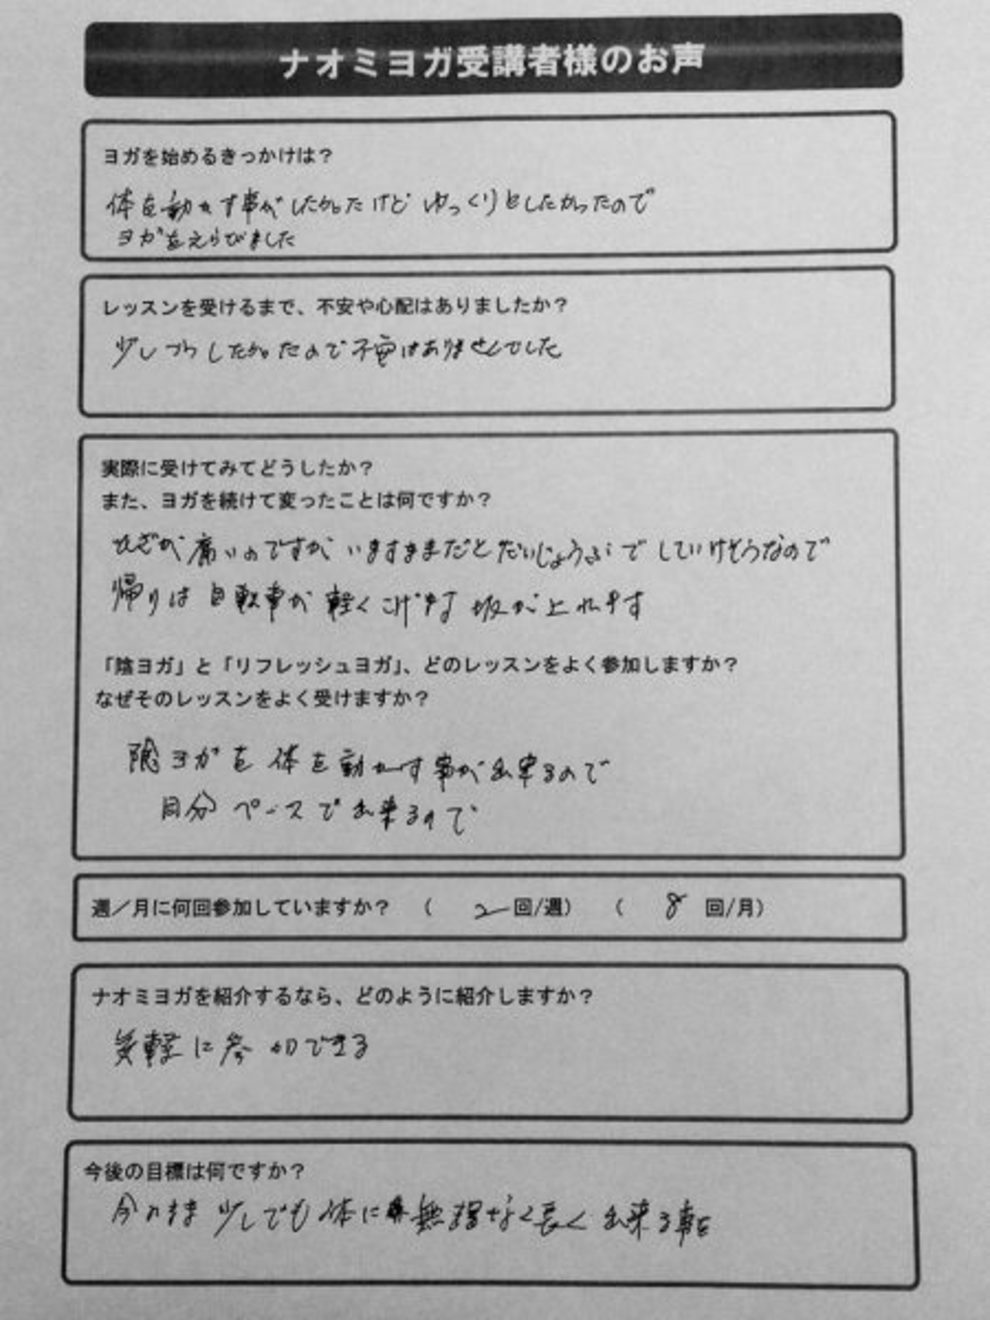 ナオミヨガ受講者様のお声
ヨガを始めるきっかけは？
体を動かす事がしたかったけど ゆっくりとしたかったので
ヨガをえらびました
レッスンを受けるまで、不安や心配はありましたか？
少しづつしたかったので不安はありませんでした
実際に受けてみてどうしたか？
また、ヨガを続けて変ったことは何ですか？
ひざが痛いのですが いますままだとだいじょうぶでしていけそうなので
帰りは自転車が軽くこげます 坂が上れます
「陰ヨガ」と「リフレッシュヨガ」、どのレッスンをよく参加しますか？
なぜそのレッスンをよく受けますか？
陰ヨガを 体を動かす事が出来るので
自分ペースで出来るので
週／月に何回参加していますか？ （ 2 回/週） （ 8 回/月）
ナオミヨガを紹介するなら、どのように紹介しますか？
気軽に参加できる
今後の目標は何ですか？
今のまま 少しでも体に無理なく長く出来る事を